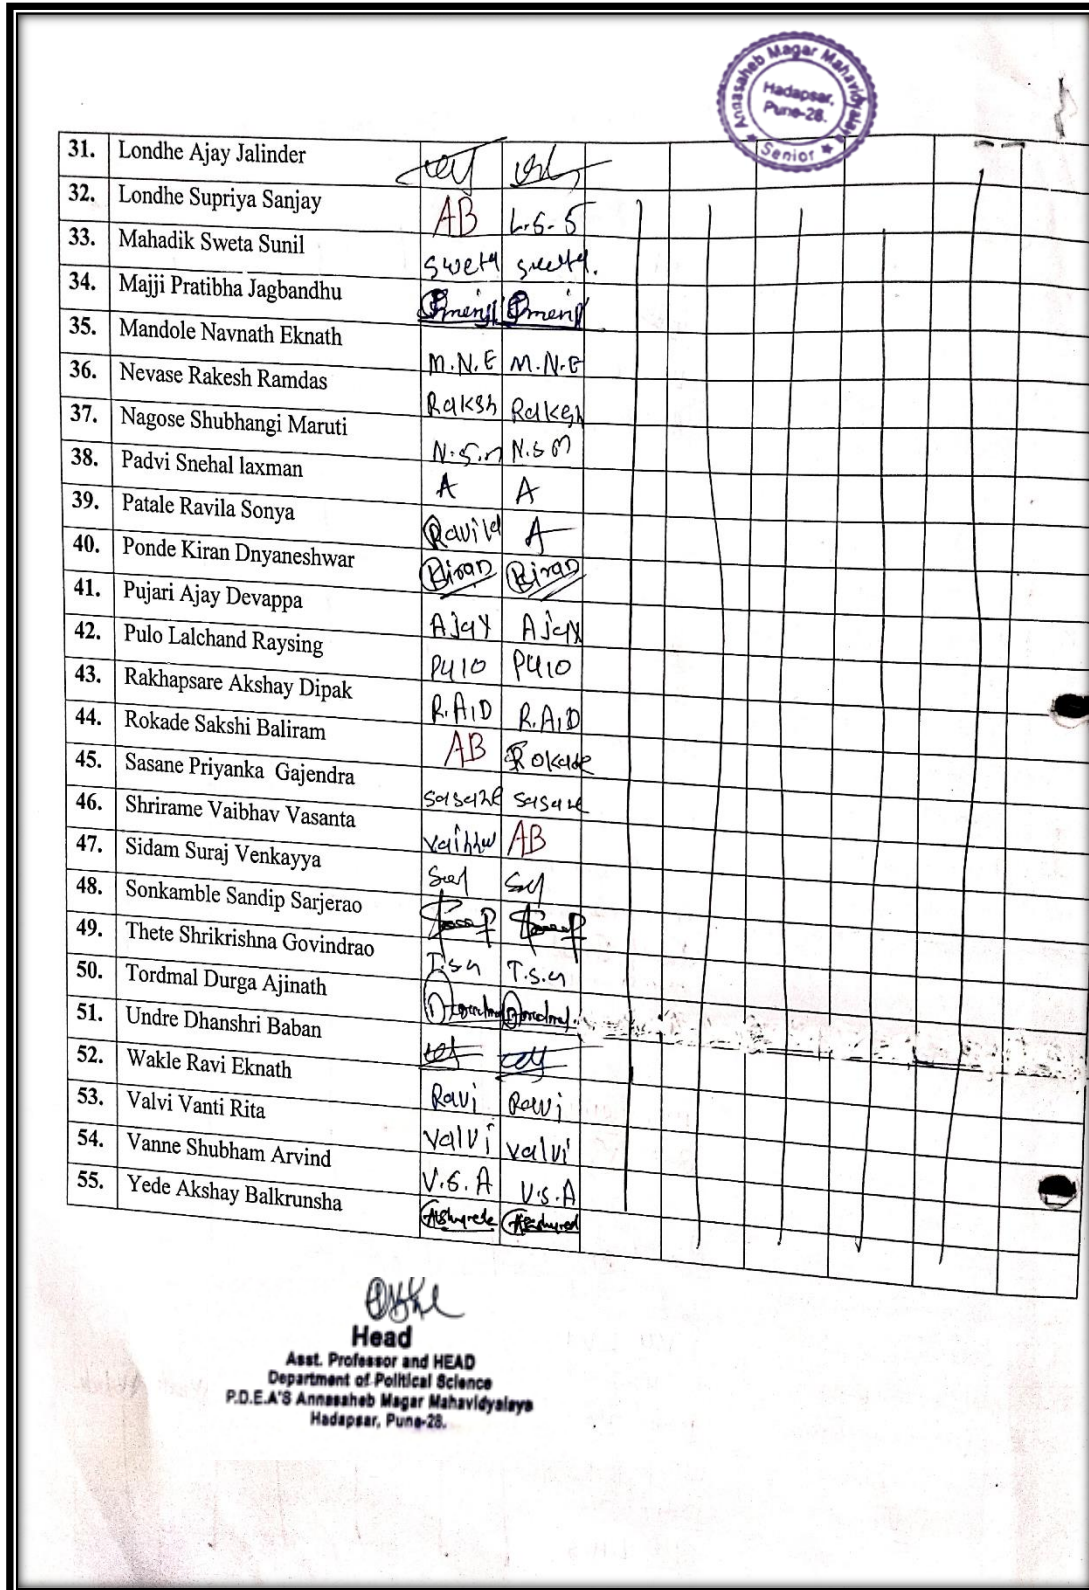 Annasaheb Magar Mahavidyalaya
Hadapsar,
Pune-28.
★ Senior ★
31. Londhe Ajay Jalinder
32. Londhe Supriya Sanjay AB L.S-S
33. Mahadik Sweta Sunil Sweta Sweta.
34. Majji Pratibha Jagbandhu
35. Mandole Navnath Eknath M.N.E M.N.E
36. Nevase Rakesh Ramdas Raksh Rakesh
37. Nagose Shubhangi Maruti N.S.M N.S M
38. Padvi Snehal laxman A A
39. Patale Ravila Sonya Ravila A
40. Ponde Kiran Dnyaneshwar Kiran Kiran
41. Pujari Ajay Devappa Ajay Ajay
42. Pulo Lalchand Raysing Pulo Pulo
43. Rakhapsare Akshay Dipak R.A.D R.A.D
44. Rokade Sakshi Baliram AB Rokade
45. Sasane Priyanka Gajendra Sasane Sasane
46. Shrirame Vaibhav Vasanta AB
47. Sidam Suraj Venkayya
48. Sonkamble Sandip Sarjerao
49. Thete Shrikrishna Govindrao T.S.G T.S.G
50. Tordmal Durga Ajinath
51. Undre Dhanshri Baban
52. Wakle Ravi Eknath Ravi Ravi
53. Valvi Vanti Rita Valvi Valvi
54. Vanne Shubham Arvind V.S.A V.S.A
55. Yede Akshay Balkrunsha
Head
Asst. Professor and HEAD
Department of Political Science
P.D.E.A'S Annasaheb Magar Mahavidyalaya
Hadapsar, Pune-28.